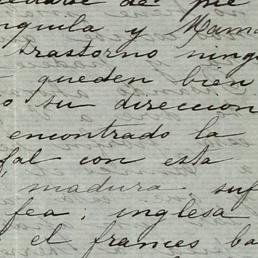 de pie
nquila y
trastorno ning
queden bien
o su direccion
encontrado la
fal con esta
madura, suf
fea; inglesa
el frances ba